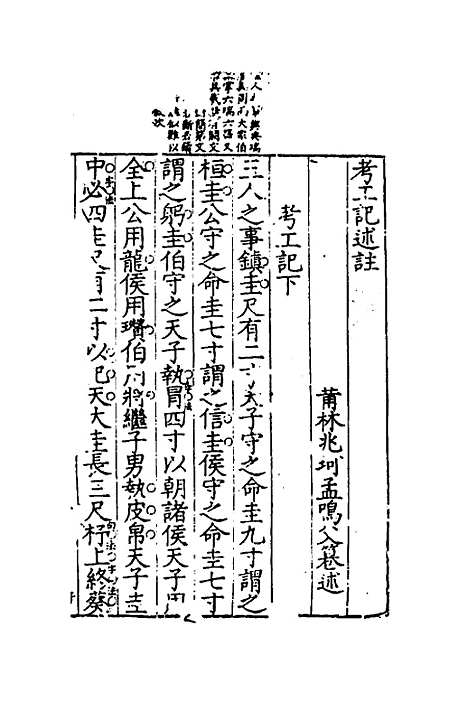 考工記述註
莆林兆珂孟鳴父纂述
考工記下
玉人之事鎮圭尺有二寸天子守之命圭九寸謂之
桓圭公守之命圭七寸謂之信圭侯守之命圭七寸
謂之躬圭伯守之天子執冒四寸以朝諸侯天子用
全上公用龍侯用瓚伯用將繼子男執皮帛天子圭
中必四圭尺有二寸以祀天大圭長三尺杼上終葵